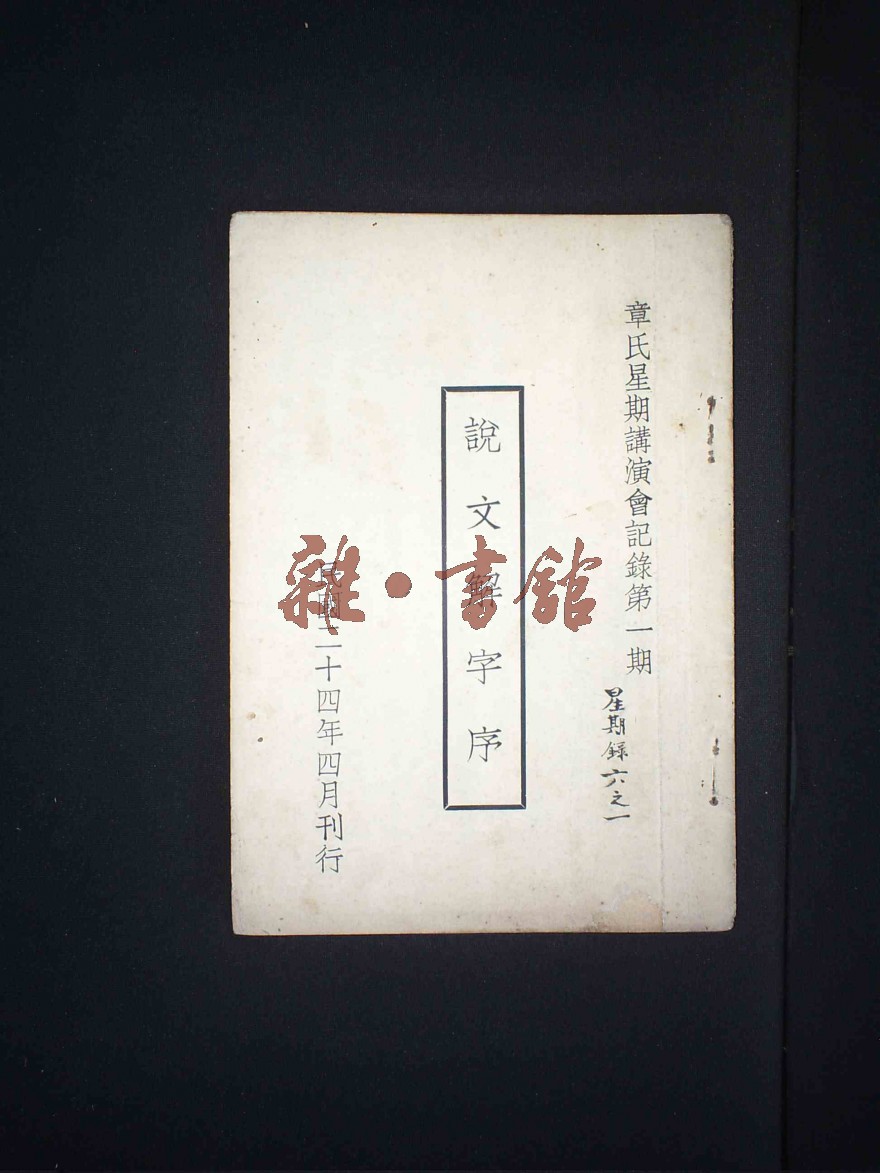 章氏星期講演會記錄第一期
星期錄六之一
說文解字序
民國二十四年四月刊行
雜·書館